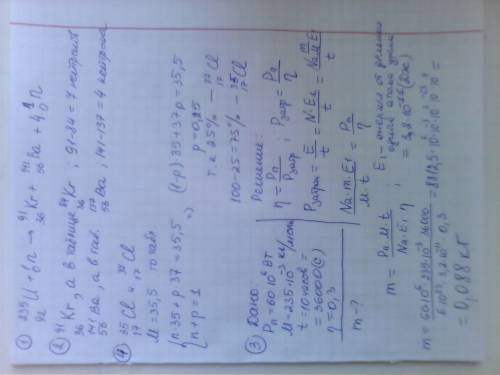 ① ²³⁵₉₂U + ¹₀n → ⁹¹₃₆Kr + ¹⁴¹₅₆Ba + 4 ¹₀n
② ⁹¹₃₆Kr, а в таблице ⁸⁴₃₆Kr, 91-84 = 7 нейтронов
¹⁴¹₅₆Ba, а в таб. ¹³⁷₅₆Ba, 141-137 = 4 нейтрона
④ ³⁵₁₇Cl и ³⁷₁₇Cl
M = 35,5 по таб.
{n·35 + p·37 = 35,5
{n + p = 1 =>
(1-p)35 + 37p = 35,5
p = 0,25
т.е 25% - ³⁷₁₇Cl
100-25 = 75% - ³⁵₁₇Cl
③ Дано:
Pп = 60·10⁶ Вт
M = 235·10⁻³ кг/моль
t = 10 часов =
= 36000 (с)
η = 0,3
m - ?
Решение:
η = Pп/Pзатр ; Pзатр = Pп/η
Pзатрач = E/t = N·E₁/t = Na m/M E₁/t
Na·m·E₁/M·t = Pп/η
m = Pп M·t/Na·E₁·η ; E₁ - энергия от деления
одного атома урана
= 3,2·10⁻¹¹ (Дж)
m = 60·10⁶·235·10⁻³·36000/6·10²³·3,2·10⁻¹¹·0,3 = 8812,5·10⁶·10⁻³·10³·10⁻²³·10¹¹ =
= 0,088 кг